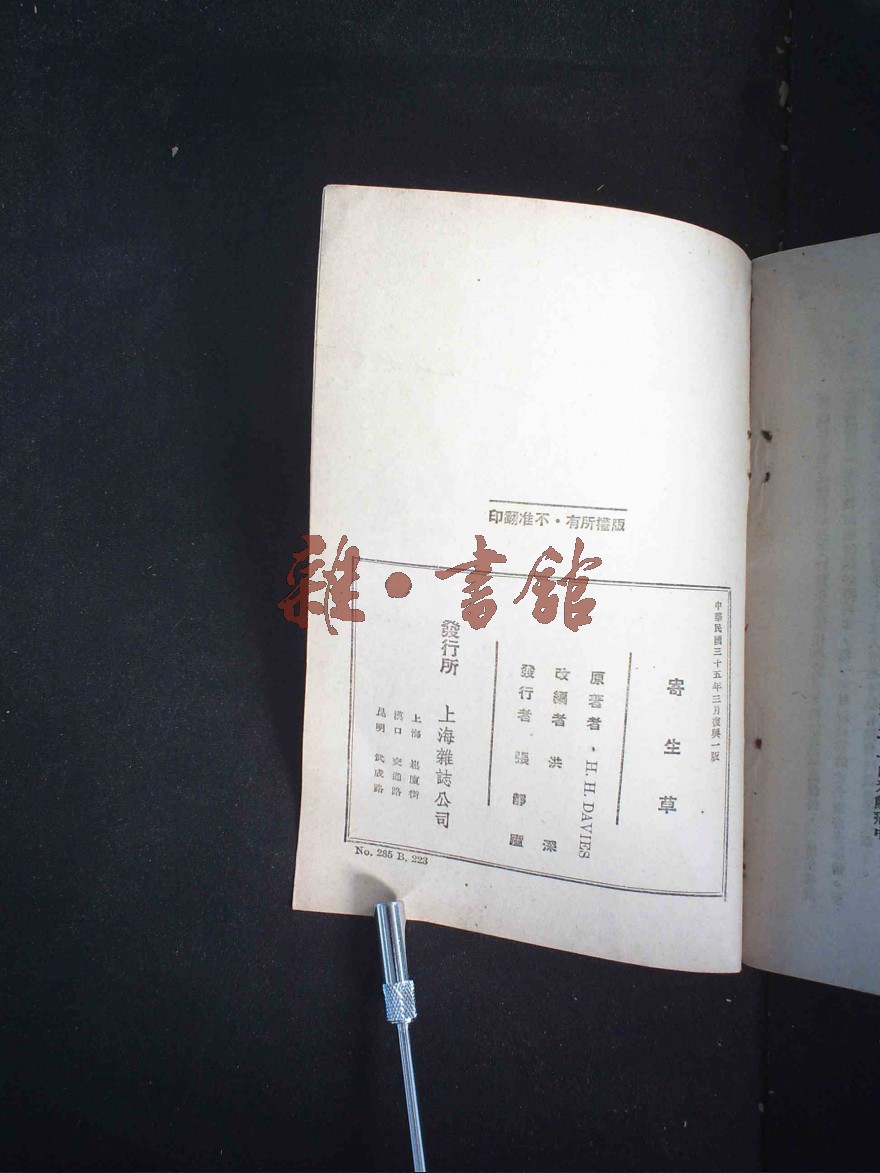 版權所有・不准翻印
中華民國三十五年三月復興一版
寄生草
原著者・H. H. DAVIES
改編者 洪深
發行者 張靜廬
發行所 上海雜誌公司
漢口 交通路
昆明 武成路
No. 285 B. 223
雜・書館